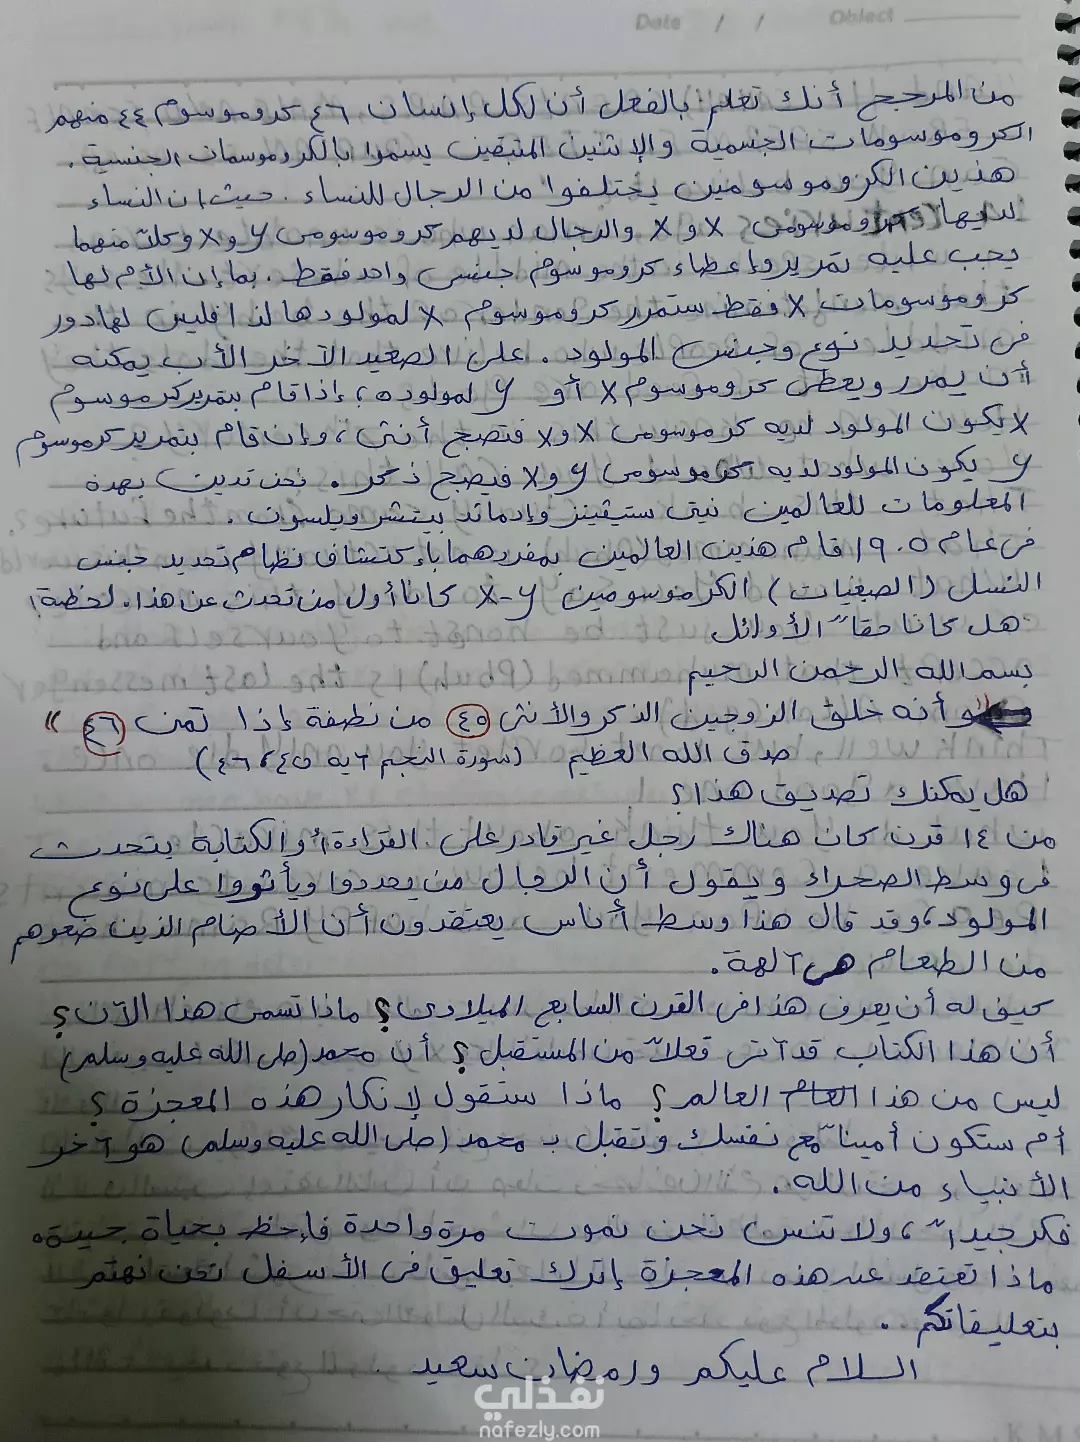 Date / / Object
من المرجح أنك تعلم بالفعل أن لكل إنسان ٤٦ كروموسوم ٤٤ منهم
الكروموسومات الجسمية والإثنين المتبقين يسموا بالكروموسمات الجنسية .
هذين الكروموسومين يختلفوا من الرجال للنساء . حيث ان النساء
لديها كروموسومى X و X والرجال لديهم كروموسومى y و X وكلاً منهما
يجب عليه تمرير وإعطاء كروموسوم جنسى واحد فقط . بما إن الأم لها
كروموسومات X فقط ستمرر كروموسوم X لمولودها لذا فليس لها دور
فى تحديد نوع وجنس المولود . على الصعيد الآخر الأب يمكنه
أن يمرر ويعطى كروموسوم X أو y لمولوده ، إذا قام بتمرير كرموسوم
X يكون المولود لديه كرموسومى X و X فتصبح أنثى ، وإن قام بتمرير كرموسوم
y يكون المولود لديه كرموسومى y و X فيصبح ذكر . نحن ندين بهدة
المعلومات للعالمين نيتى ستيفينز وإدماند بيتشر ويلسون .
فى عام ١٩٠٥ قام هذين العالمين بمفردهما باءكتشاف نظام تحديد جنس
النسل (الصبغيات) الكرموسومين X-y كانا أول من تحدث عن هذا . لحظة!
هل كانا حقاً الأوائل
بسم الله الرحمن الرحيم
و أنه خلق الزوجين الذكر والأنثى ٤٥ من نطفة إذا تمنى ٤٦ "
صدق الله العظيم (سورة النجم آيه ٤٥،٤٦)
هل يمكنك تصديق هذا ؟
من ١٤ قرن كان هناك رجل غير قادر على القراءة أو الكتابة يتحدث
فى وسط الصحراء ويقول أن الرجال من يحددوا ويأثروا على نوع
المولود، وقد قال هذا وسط أناس يعتقدون أن الأصنام الذين صنعوهم
من الطعام هى آلهة .
كيف له أن يعرف هذا فى القرن السابع الميلادى ؟ ماذا تسمى هذا الآن ؟
أن هذا الكتاب قد آتى فعلاً من المستقبل ؟ أن محمد (صلى الله عليه وسلم)
ليس من هذا العالم ؟ ماذا ستقول لإنكار هذه المعجزة ؟
أم ستكون أميناً مع نفسك وتقبل بـ محمد (صلى الله عليه وسلم) هو آخر
الأنبياء من الله .
فكر جيداً ، ولا تنس نحن نموت مرة واحدة فإحظ بحياة جيدة .
ماذا تعتقد عن هذه المعجزة إترك تعليق فى الأسفل نحن نهتم
بتعليقاتكم .
السلام عليكم ورمضان سعيد .
نفذلي
nafezly.com